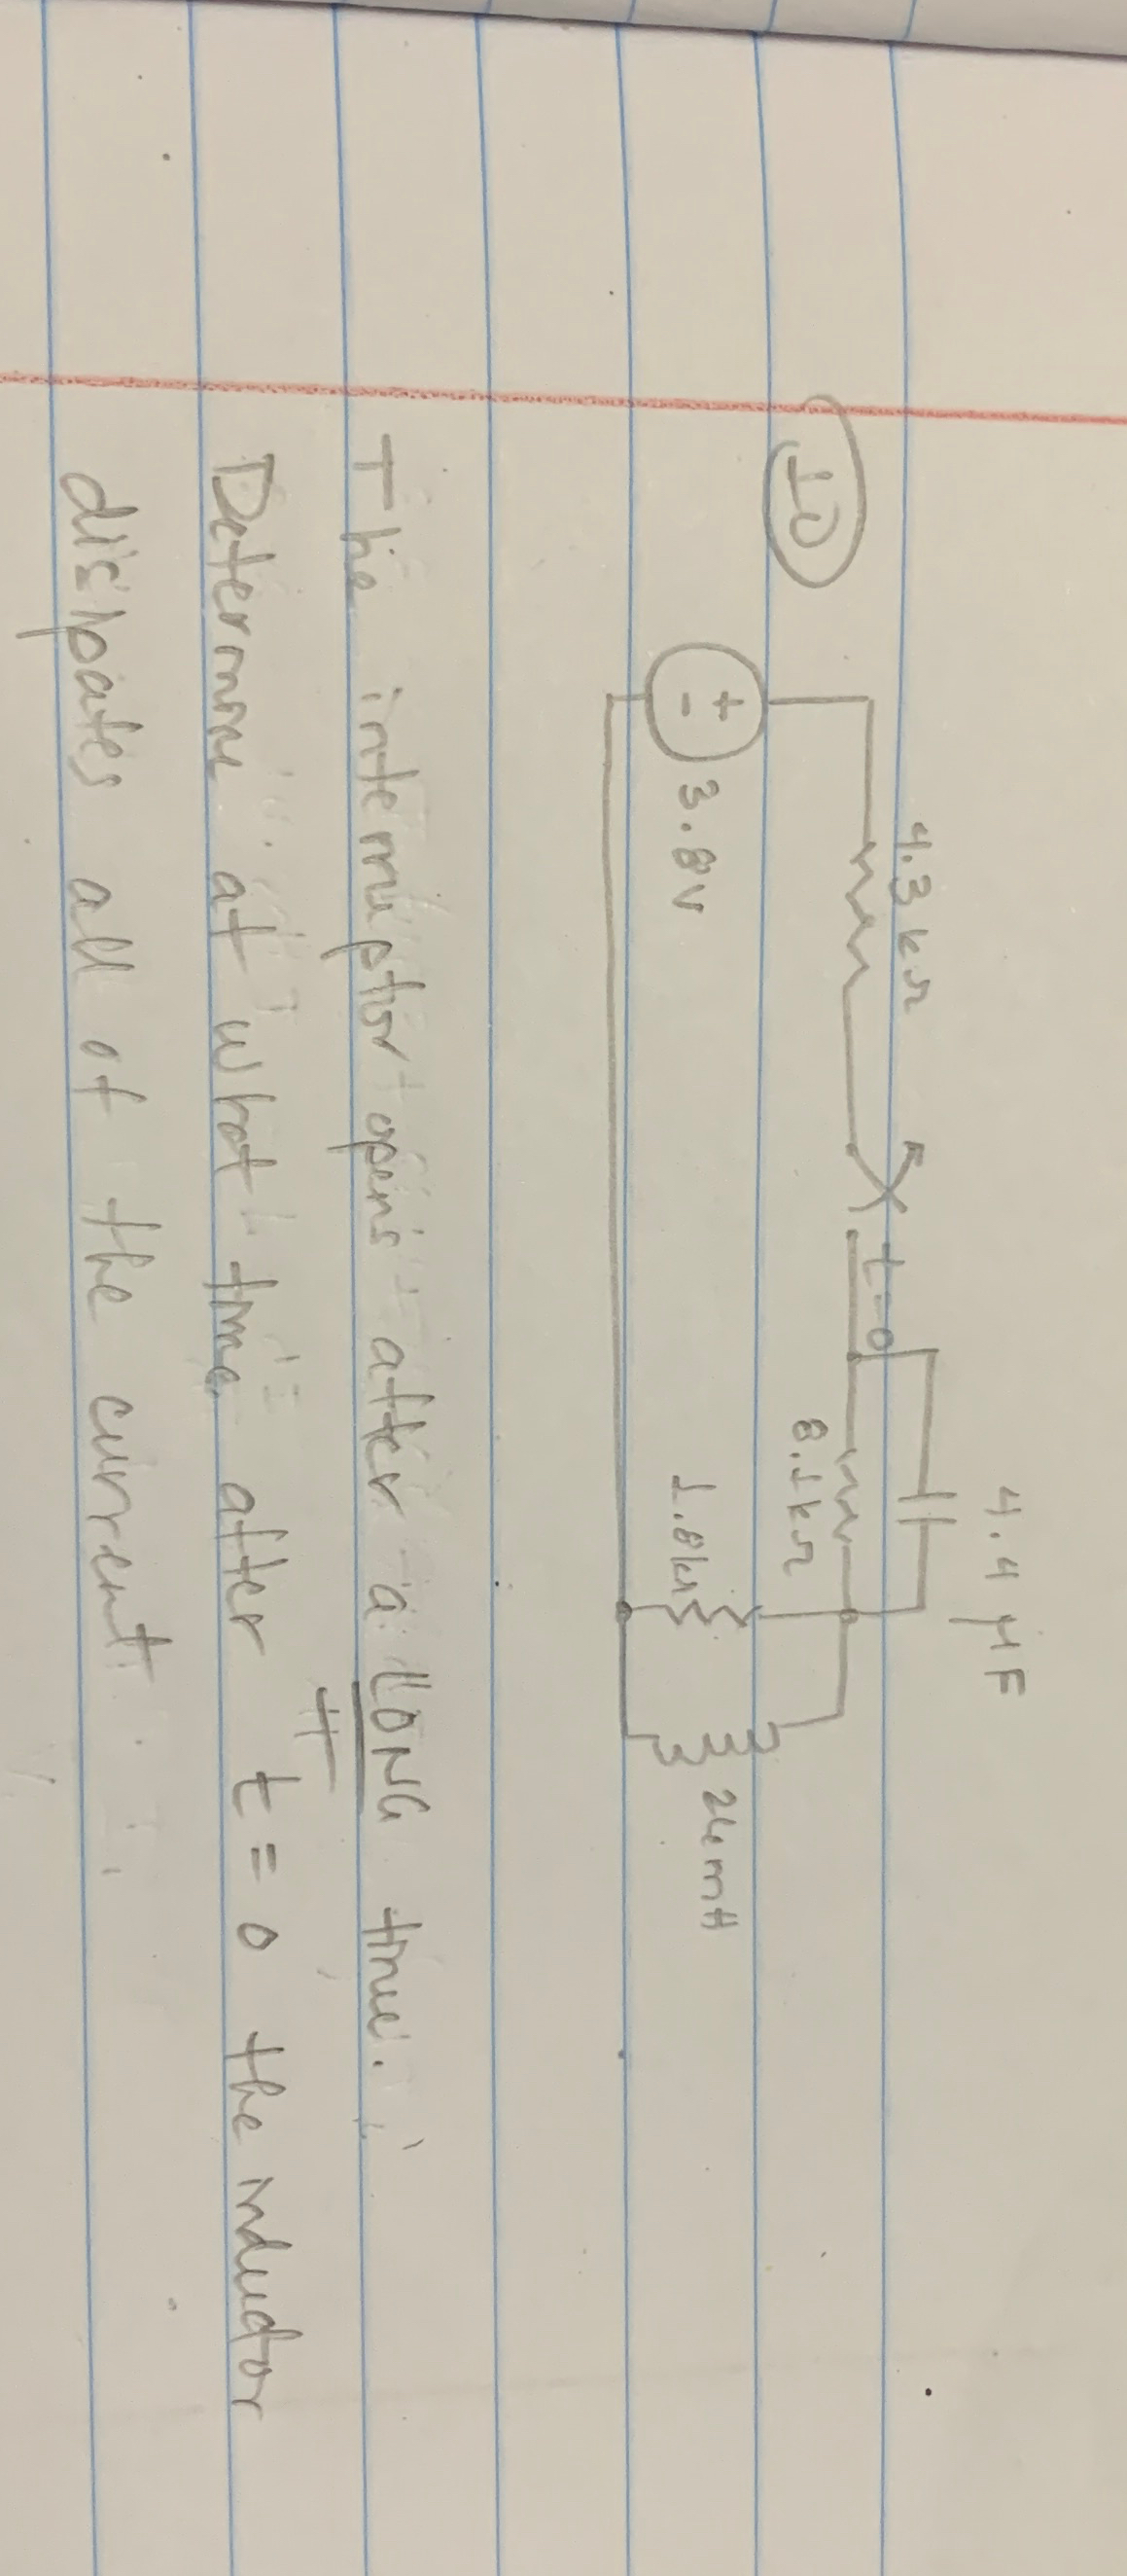 10
4.3 kΩ
t=0
4.4 μF
8.1kΩ
+
-
3.8V
1.8kΩ
24mH
The interruptor opens after a LONG time.
Determine at what time after t = 0 the inductor
disipates all of the current.